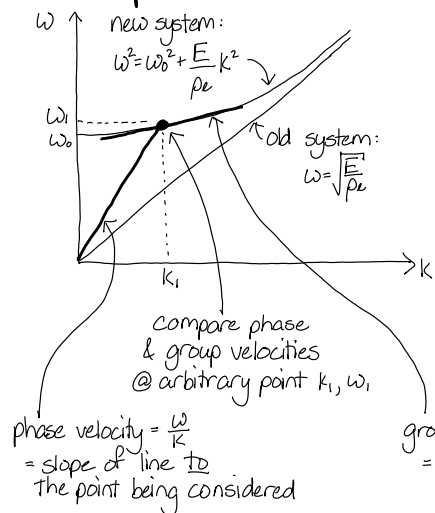 ω
new system:
ω² = ω₀² + E/ρₑ k²
ω₁
ω₀
old system:
ω = √E/ρₑ
k₁
k
compare phase
& group velocities
@ arbitrary point k₁, ω₁
phase velocity = ω/k
= slope of line to
the point being considered
gro
=